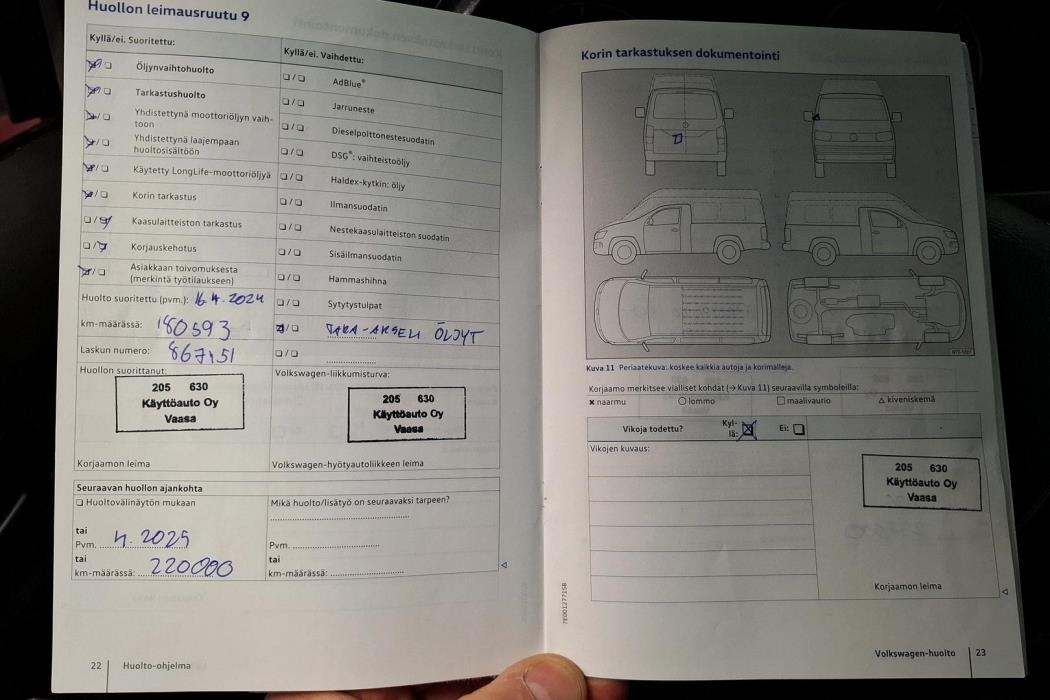 Huollon leimausruutu 9
Kyllä/ei. Suoritettu:
Öljynvaihtohuolto
Tarkastushuolto
Yhdistettynä moottoriöljyn vaih-
toon
Yhdistettynä laajempaan
huoltosisältöön
Käytetty LongLife-moottoriöljyä
Korin tarkastus
Kaasulaitteiston tarkastus
Korjauskehotus
Asiakkaan toivomuksesta
(merkintä työtilaukseen)
Huolto suoritettu (pvm.): 16.4.2024
km-määrässä: 180593
Laskun numero: 867151
Huollon suorittanut:
205 630
Käyttöauto Oy
Vaasa
Korjaamon leima
Kyllä/ei. Vaihdettu:
AdBlue®
Jarruneste
Dieselpolttonestesuodatin
DSG®: vaihteistoöljy
Haldex-kytkin: öljy
Ilmansuodatin
Nestekaasulaitteiston suodatin
Sisäilmansuodatin
Hammashihna
Sytytystulpat
TAKA-AKSELI ÖLJYT
Volkswagen-liikkumisturva:
205 630
Käyttöauto Oy
Vaasa
Volkswagen-hyötyautoliikkeen leima
Seuraavan huollon ajankohta
Huoltovälinäytön mukaan
tai
Pvm. 4.2025
tai
km-määrässä: 220000
Mikä huolto/lisätyö on seuraavaksi tarpeen?
Pvm.
tai
km-määrässä:
22 Huolto-ohjelma
Korin tarkastuksen dokumentointi
Kuva 11 Periaatekuva: koskee kaikkia autoja ja korimalleja.
Korjaamo merkitsee vialliset kohdat (→ Kuva 11) seuraavilla symboleilla:
✖ naarmu ○ lommo □ maalivaurio △ kiveniskemä
Vikoja todettu? Kyl-
lä: Ei:
Vikojen kuvaus:
205 630
Käyttöauto Oy
Vaasa
Korjaamon leima
7E0012771SB
Volkswagen-huolto 23